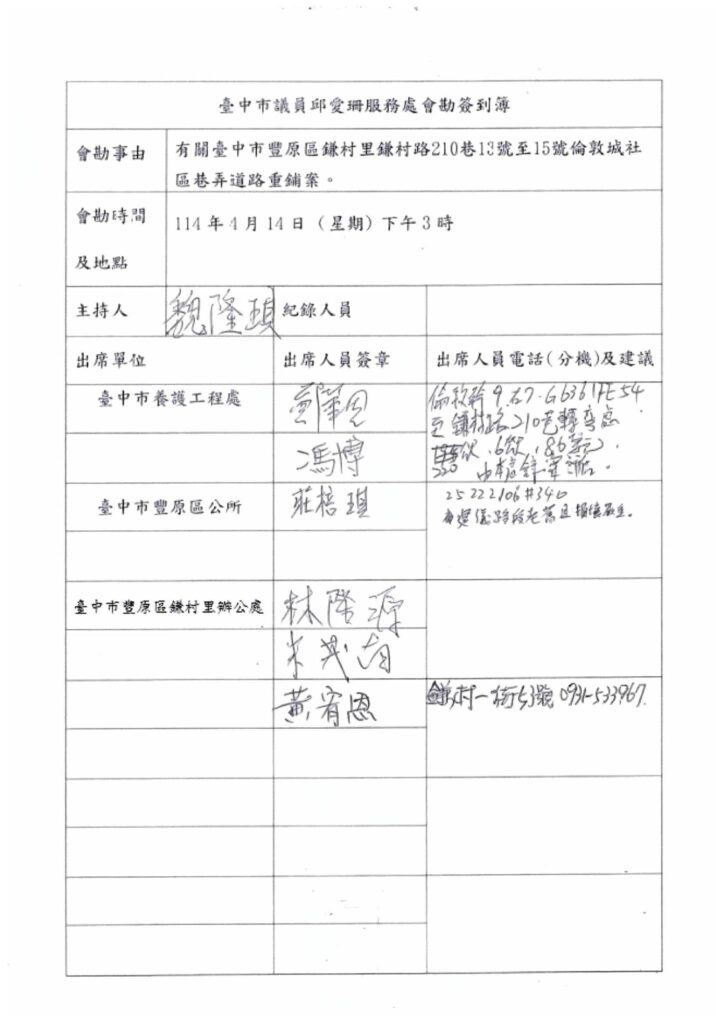 臺中市議員邱愛珊服務處會勘簽到簿
會勘事由
有關臺中市豐原區鎌村里鎌村路210巷13號至15號倫敦城社
區巷弄道路重鋪案。
會勘時間
及地點
114年4月14日（星期）下午3時
主持人
魏隆
紀錄人員
出席單位
出席人員簽章
出席人員電話(分機)及建議
臺中市養護工程處
G6361FE54
至鎌村路210巷轉彎處
馮博
臺中市豐原區公所
莊培琪
25222106#340
臺中市豐原區鎌村里辦公處
林隆源
黃宥恩
鎌村一街53號 0931-533967.